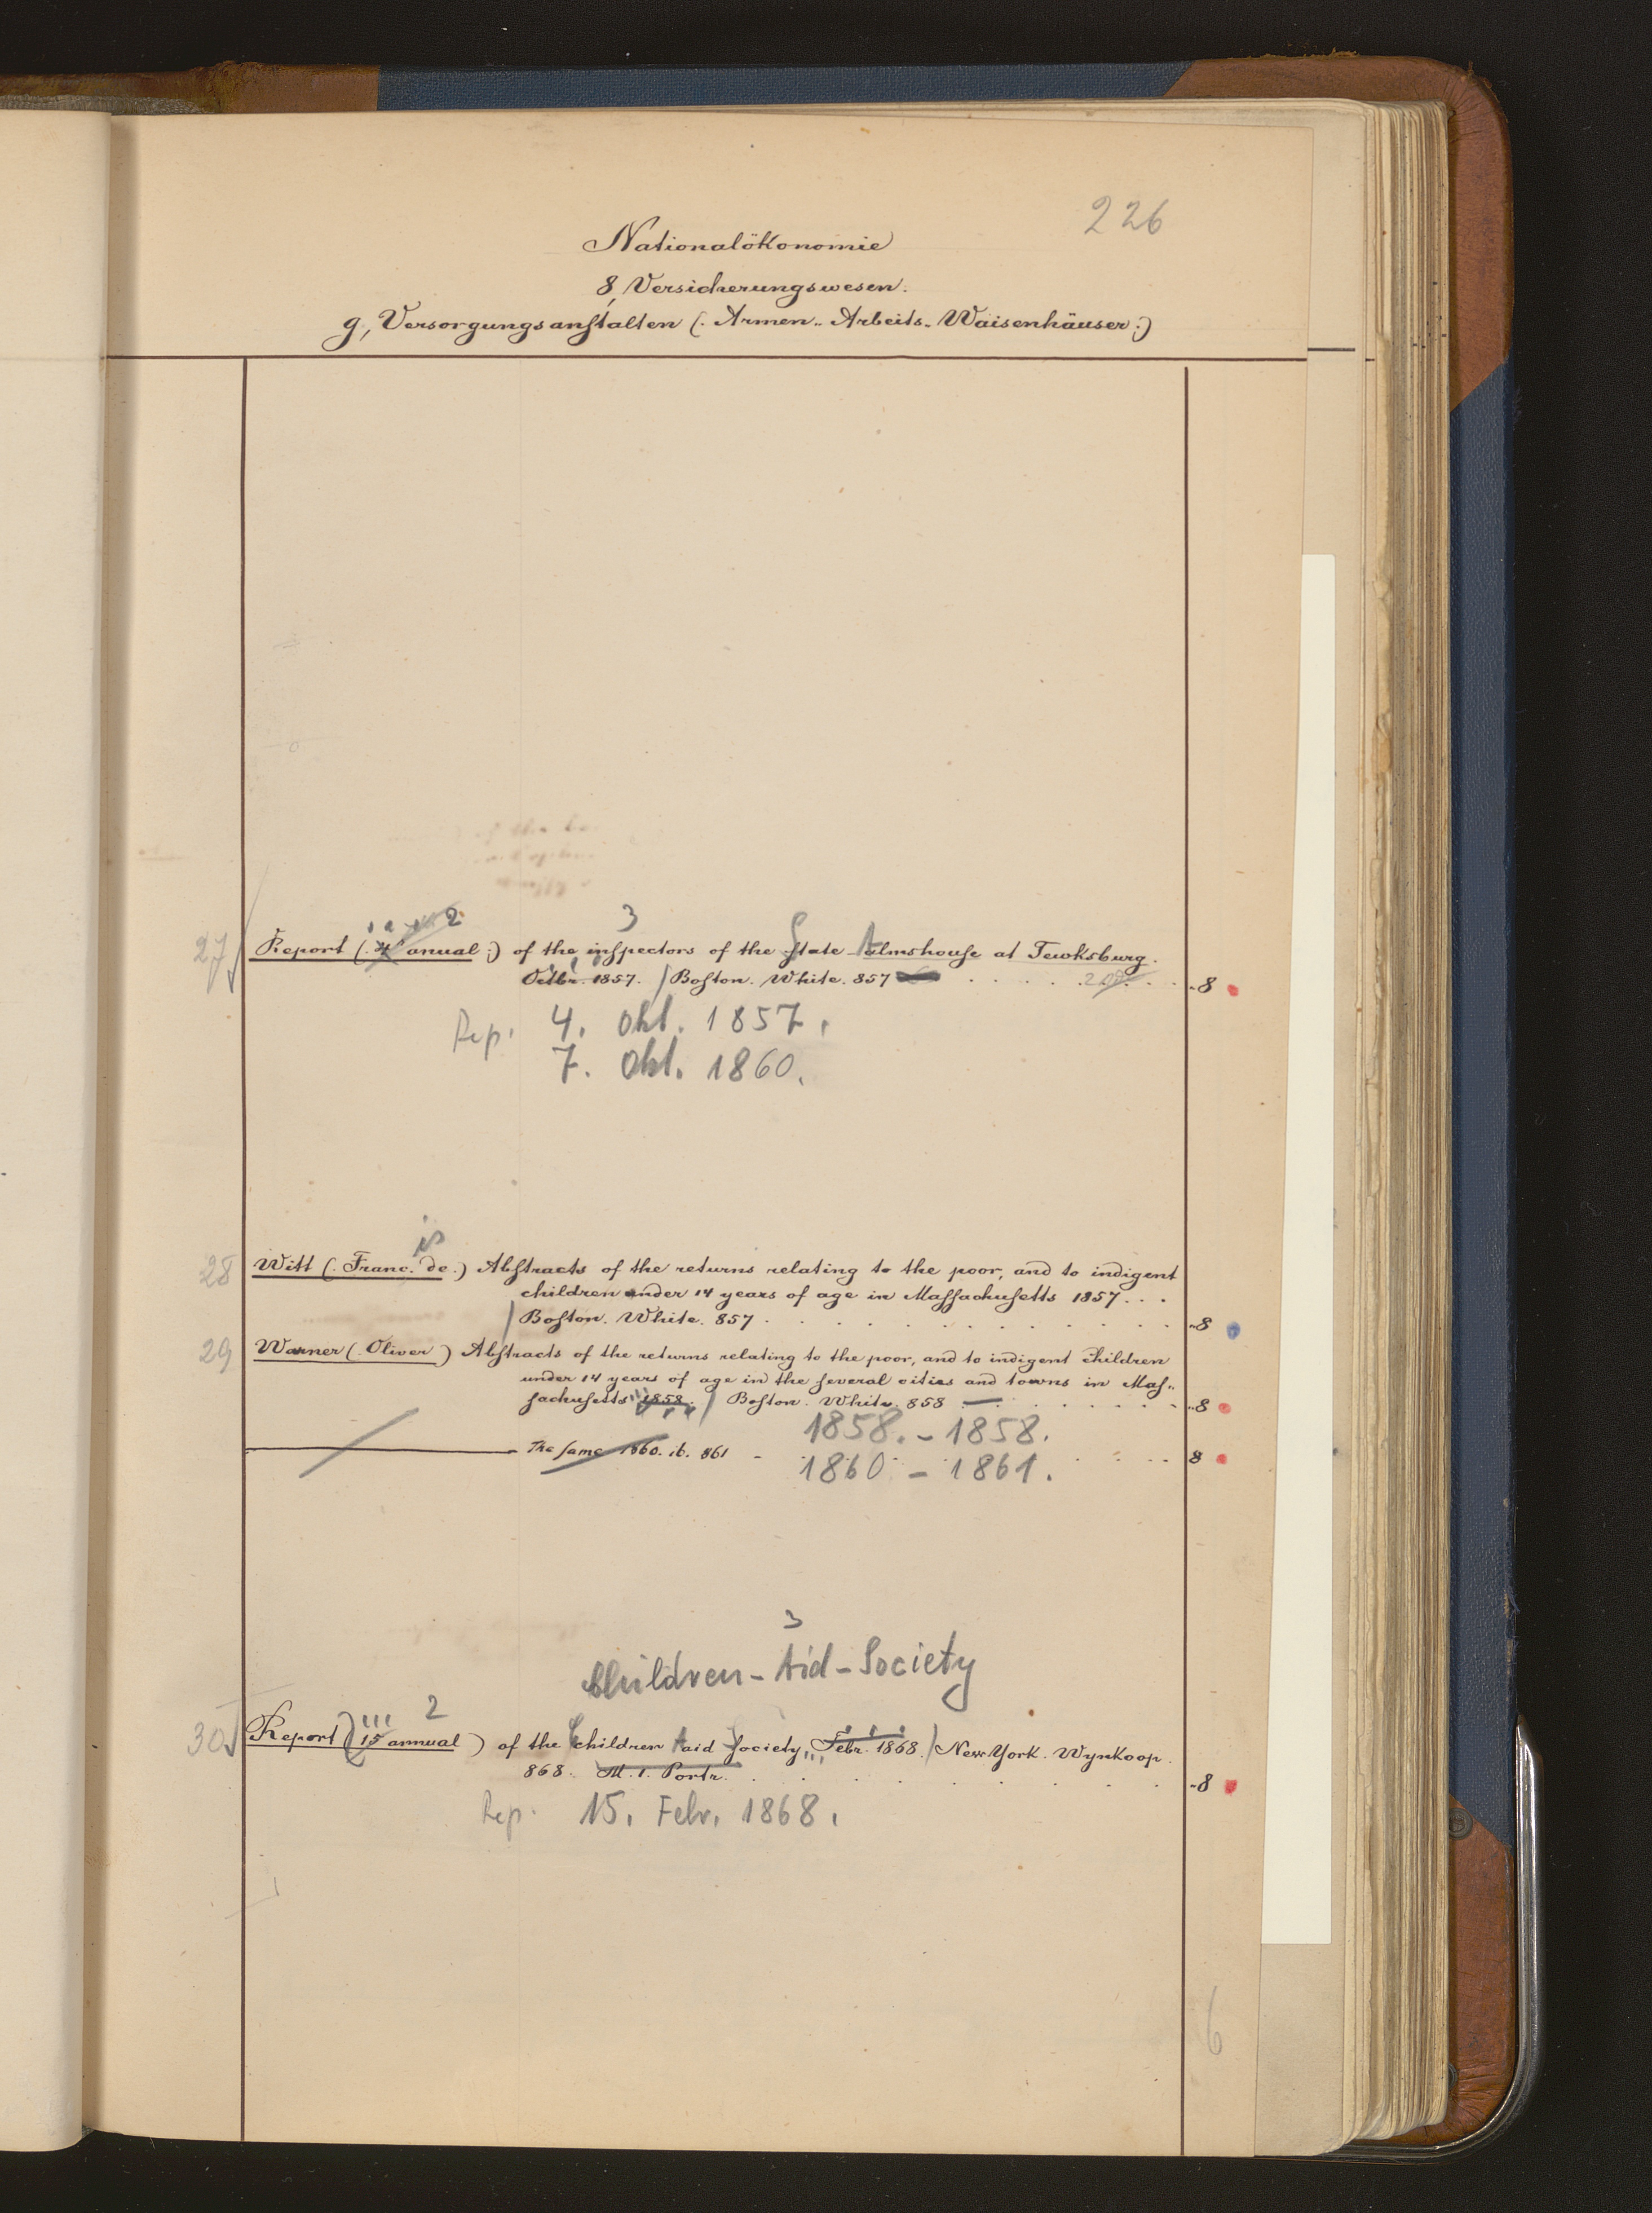 226
Nationalökonomie
8, Versicherungswesen.
g, Versorgungsanstalten (: Armen- Arbeits- Waisenhäuser :)
2
3
27 Report (: 4 anual :) of the inspectors of the State Almshouse at Tewksburg.
Octbr. 1857. / Boston. White. 857
-8
Rep. 4. Okt. 1857.
7. Okt. 1860.
is
28 Witt (: Franc. de.) Abstracts of the returns relating to the poor, and to indigent
children under 14 years of age in Massachusetts 1857 . . .
/ Boston. White. 857 . -8
29 Warner (: Oliver ) Abstracts of the returns relating to the poor, and to indigent children
under 14 years of age in the several cities and towns in Mas-
sachusetts 1858. / Boston. White. 858 -8
1858. - 1858.
The same 1860. ib. 861 - 8
1860 - 1861.
3
Children - Aid - Society
2
30 Report (15 annual ) of the Children Aid Society, Febr. 1868. / New York. Wynkoop.
868. M. 1. Portr. -8
Rep. 15. Febr. 1868.
6